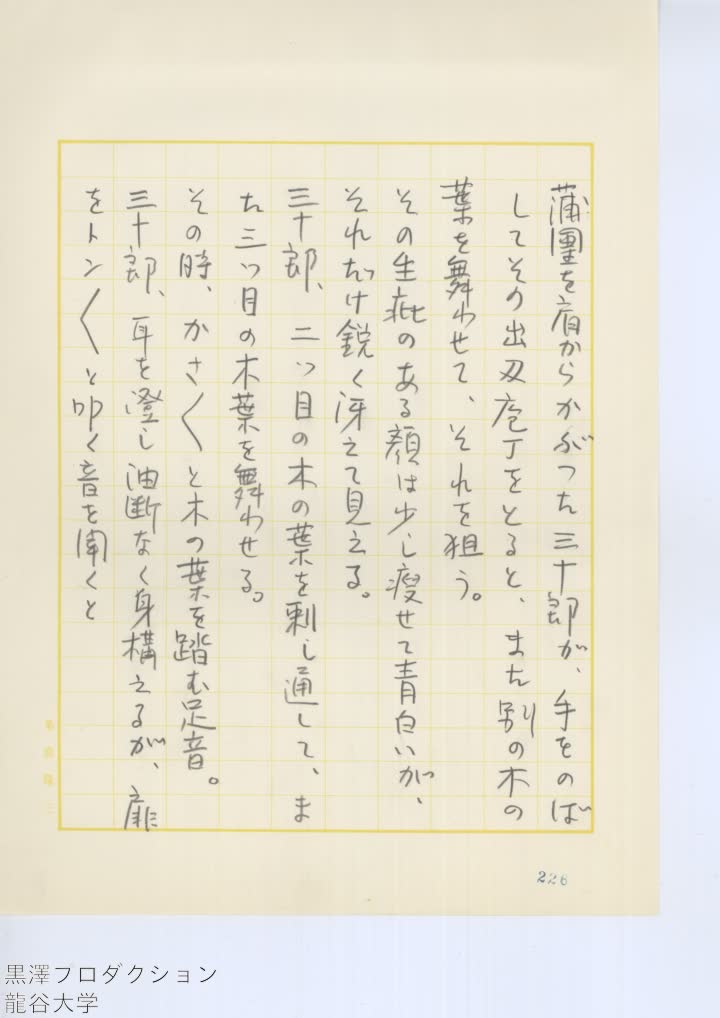 蒲團を肩からかぶつた三十郎が、手をのば
してその出刃庖丁をとると、また別の木の
葉を舞わせて、それを狙う。
その生疵のある顔は少し瘦せて青白いが、
それだけ鋭く冴えて見える。
三十郎、二つ目の木の葉を刺し通して、ま
た三つ目の木葉を舞わせる。
その時、かさ〱と木の葉を踏む足音。
三十郎、耳を澄し油断なく身構えるが、扉
をトン〱と叩く音を聞くと
226
黒澤プロダクション
龍谷大学